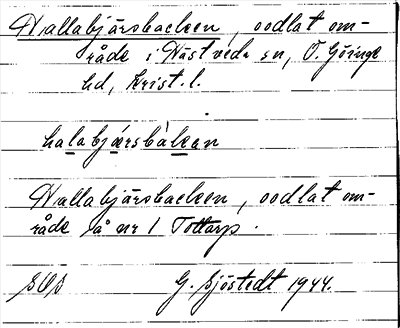 Hallabjärsbacken, oodlat om-
råde i Hästveda sn, Ö. Göinge
hd, Krist. l.
halabjærsbàkan
Hallabjärsbacken, oodlat om-
råde å nr 1 Tottarp.
SOS G. Sjöstedt 1944.